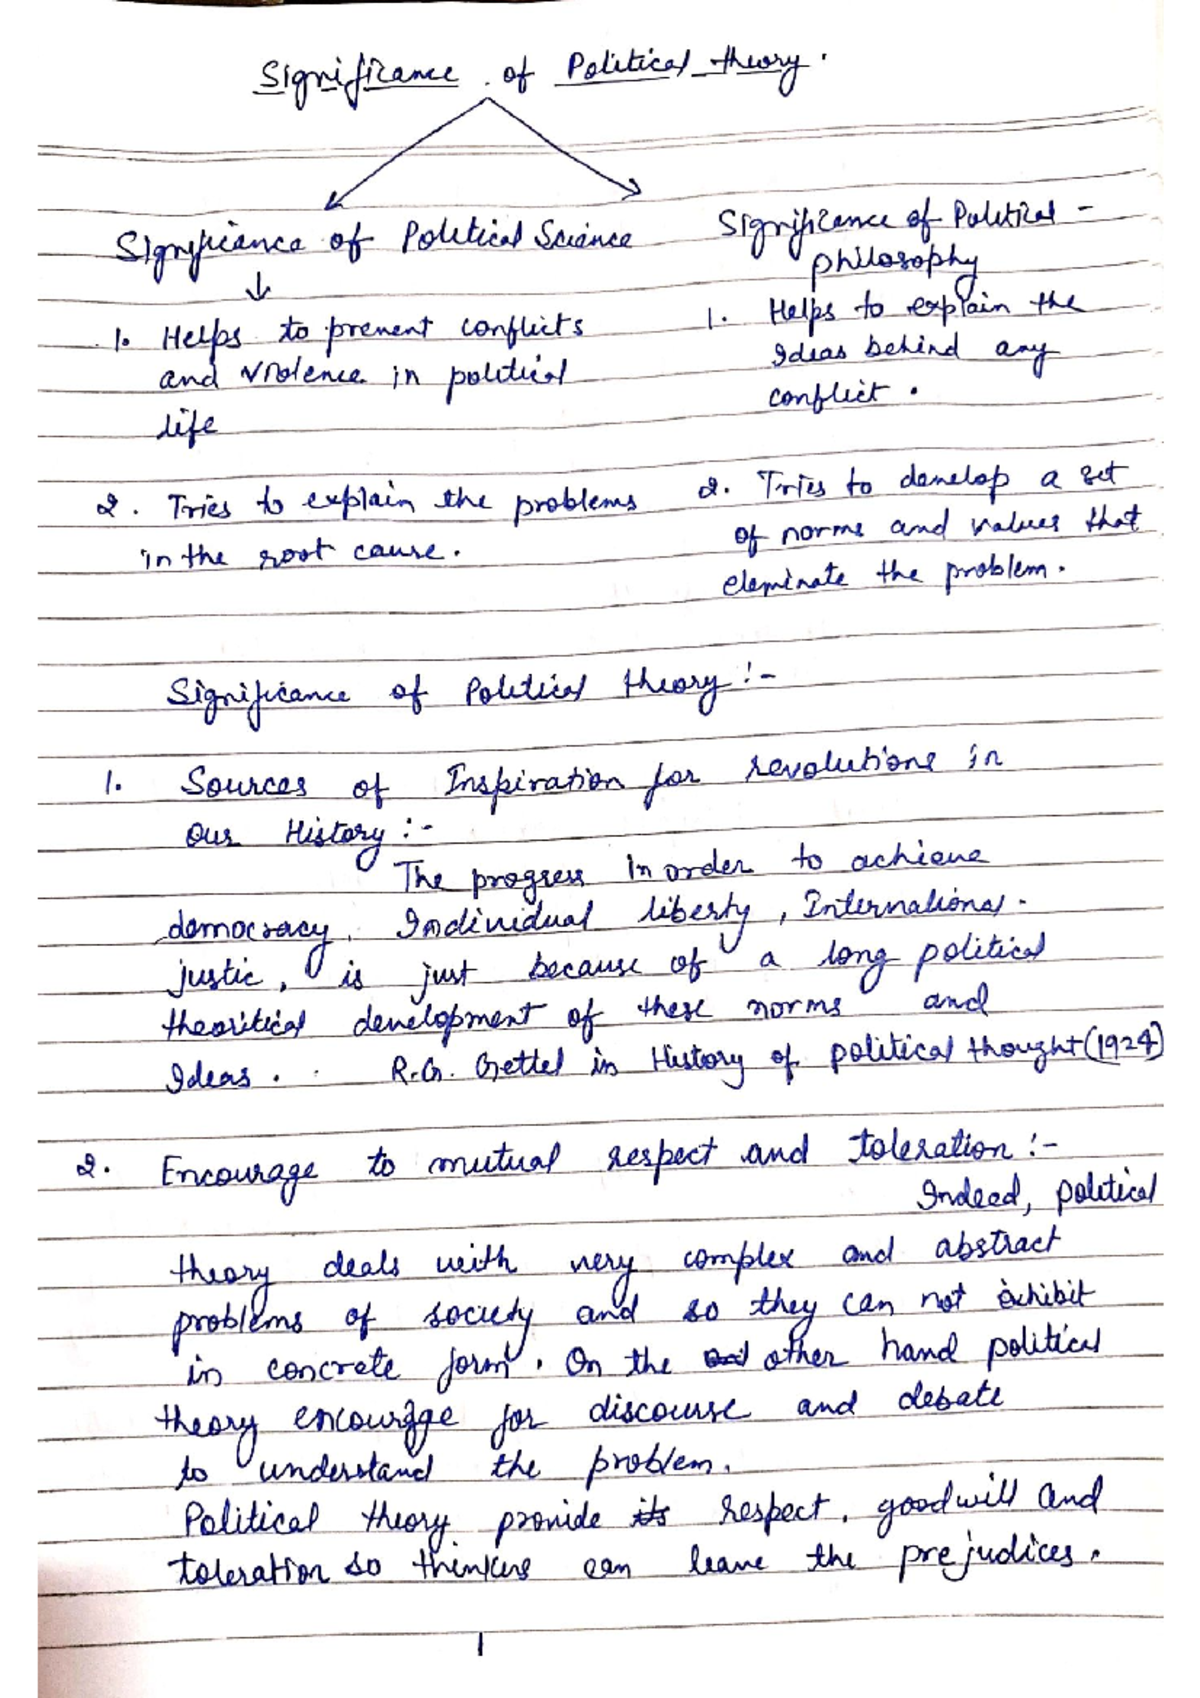 Significance of Political theory.
Significance of Political Science
↓
1. Helps to prevent conflicts
and violence in political
life
2. Tries to explain the problems
in the root cause.
Significance of Political -
philosophy
1. Helps to explain the
Ideas behind any
conflict.
2. Tries to develop a set
of norms and values that
eleminate the problem.
Significance of Political theory :-
1. Sources of Inspiration for revolutions in
our History :-
The progress in order to achieve
democracy, Individual liberty, International
justic, is just because of a long political
theoritical development of these norms and
Ideas. R.G. Gettel in History of political thought (1924)
2. Encourage to mutual respect and toleration :-
Indeed, political
theory deals with very complex and abstract
problems of society and so they can not exhibit
in concrete form. On the other hand political
theory encourage for discourse and debate
to understand the problem.
Political theory provide its respect, goodwill and
toleration so thinkers can leave the prejudices.
1